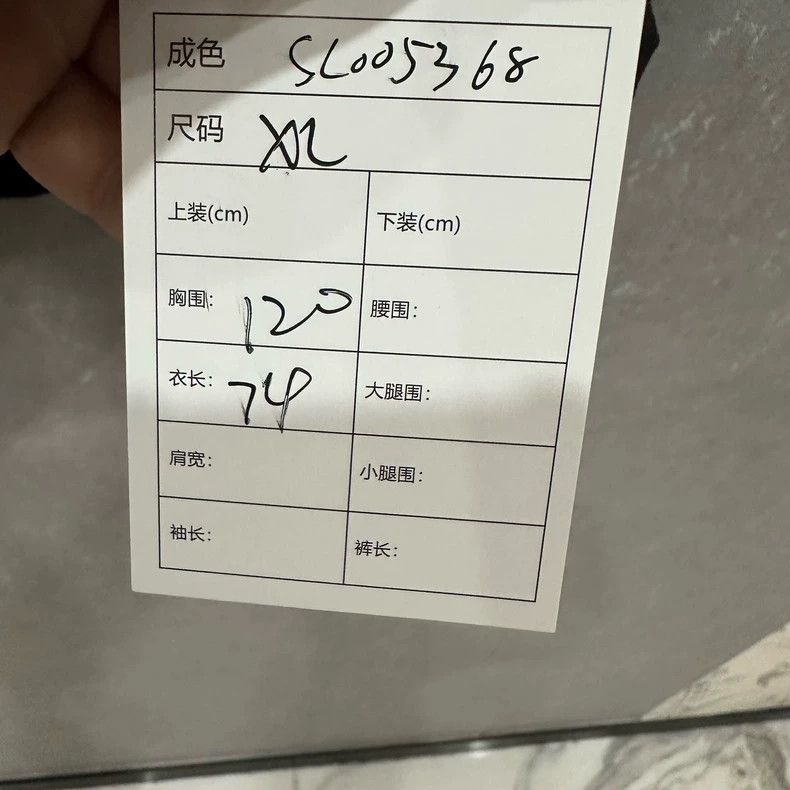 成色 SL005368
尺码 XL
上装(cm) 下装(cm)
胸围: 120 腰围:
衣长: 74 大腿围:
肩宽: 小腿围:
袖长: 裤长: